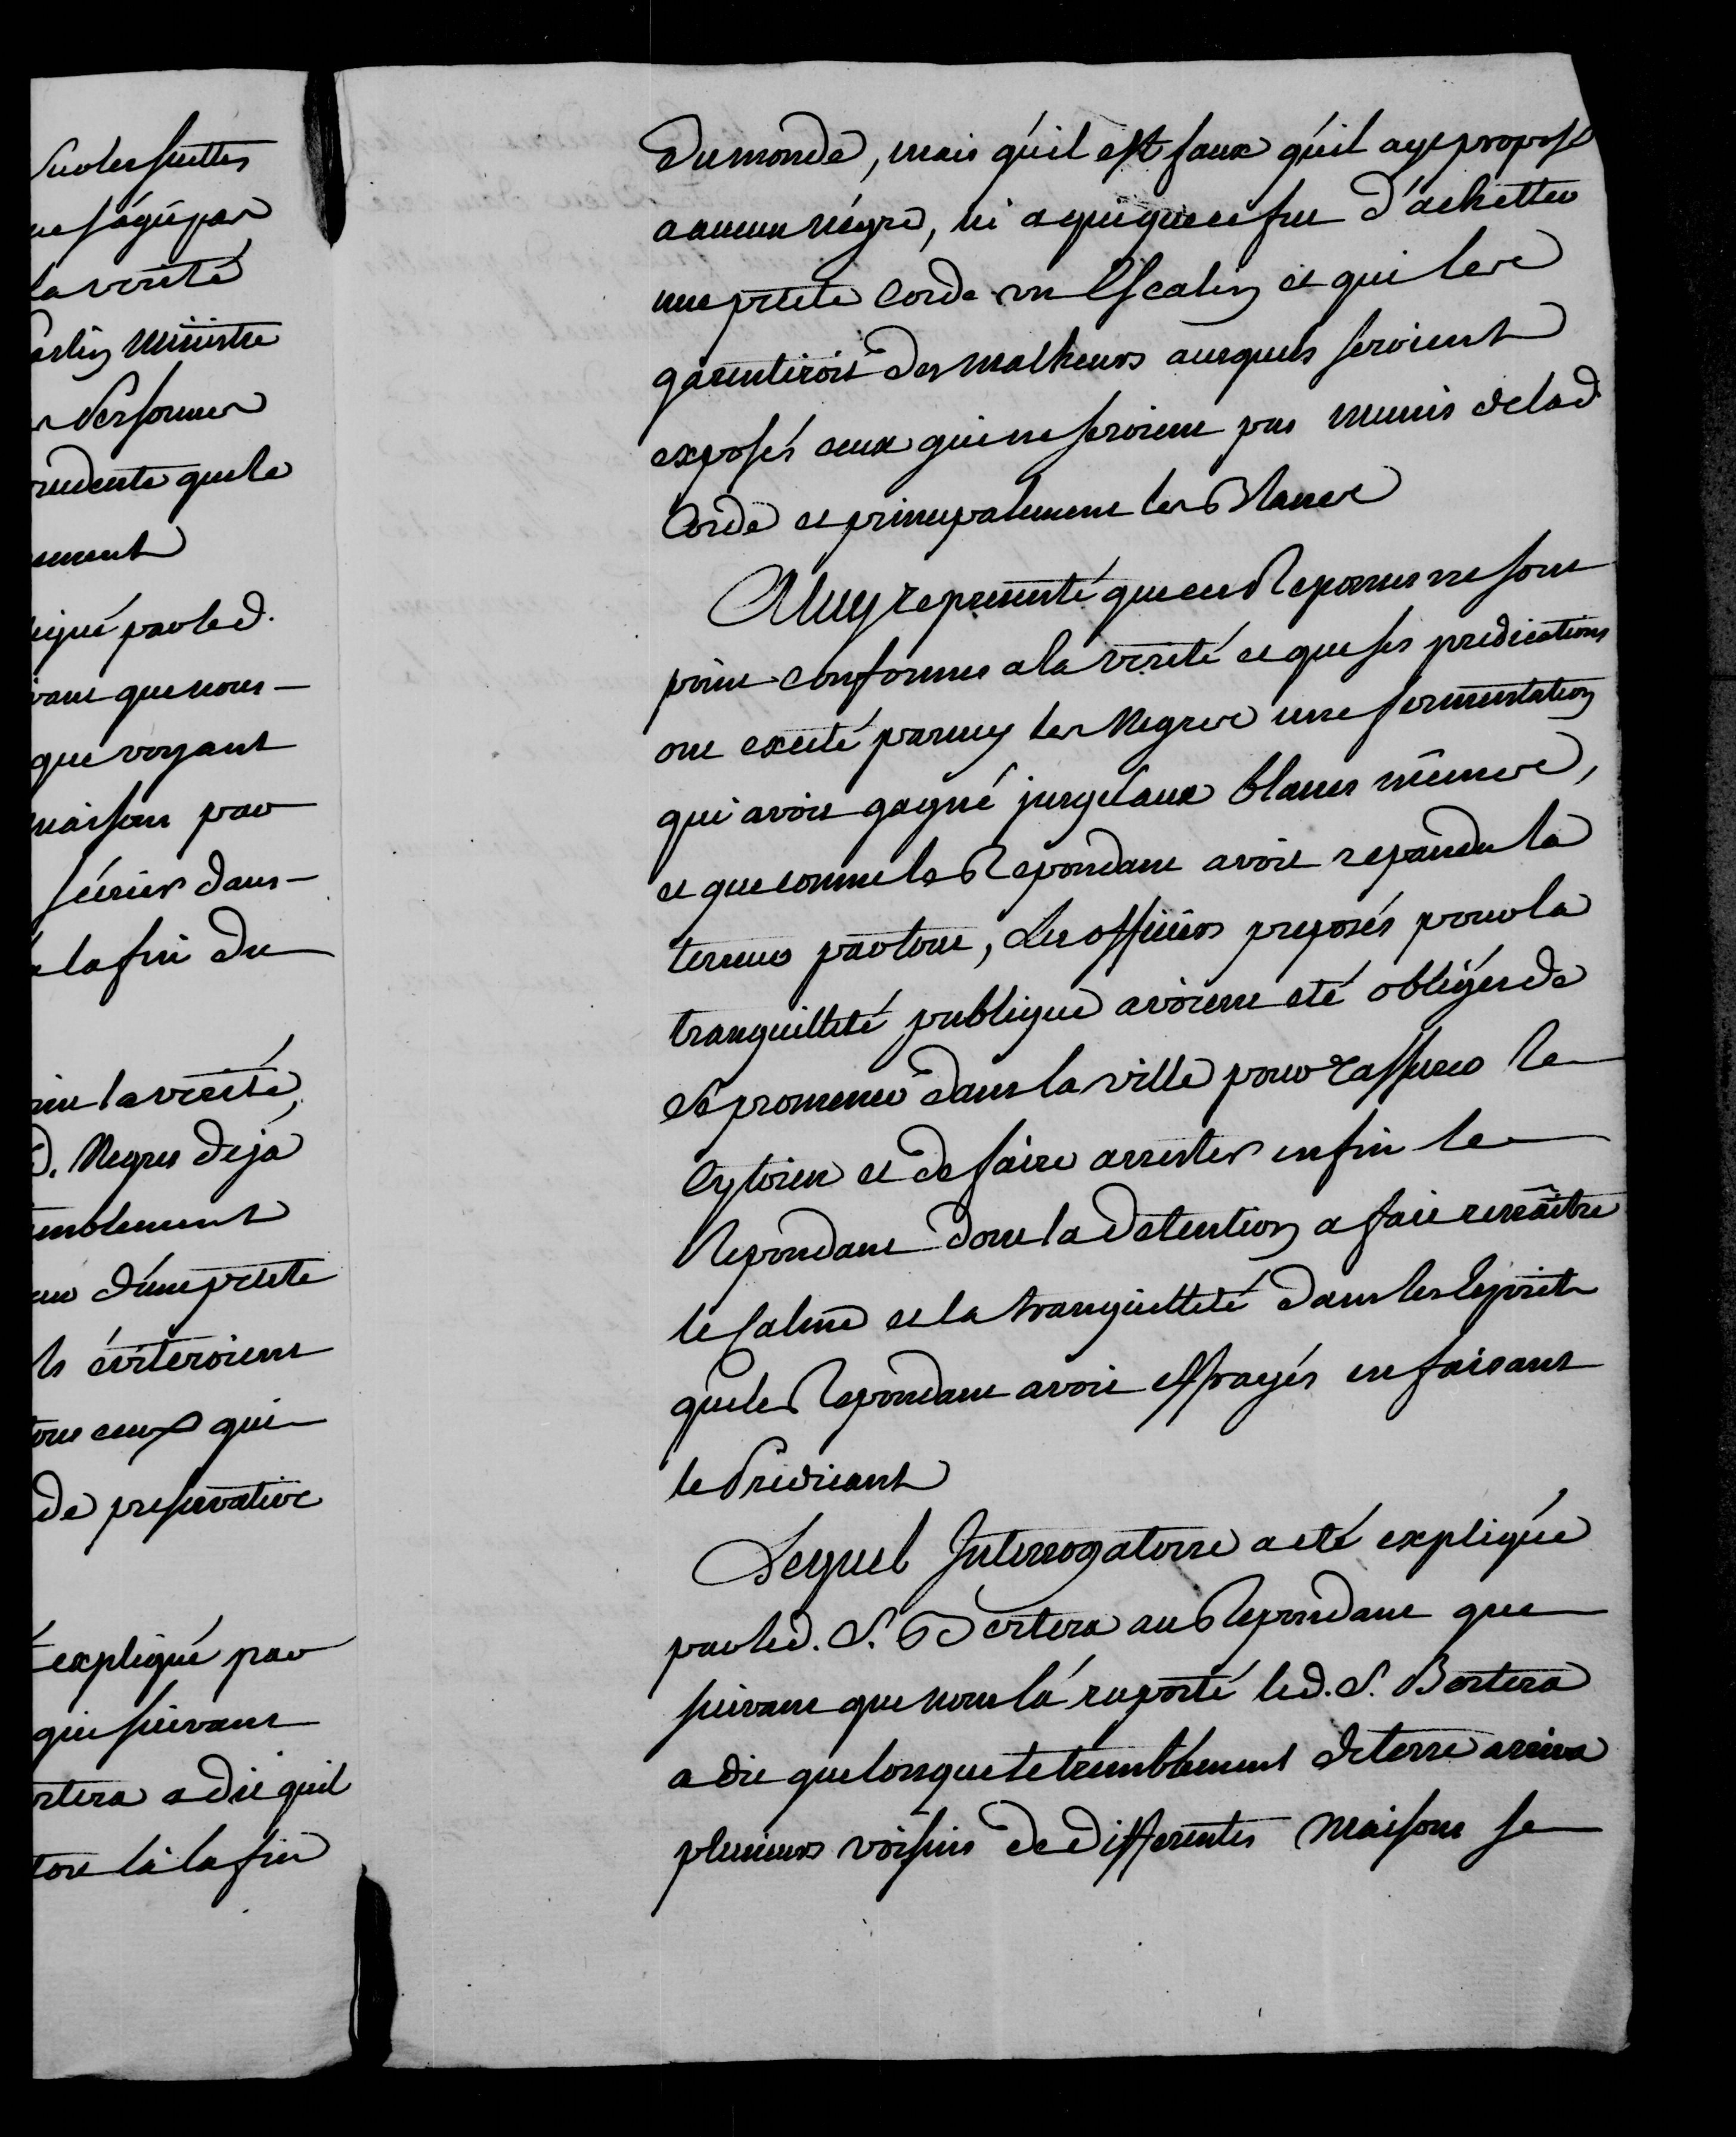 Sur les suittes
ne s'agit par
la verité
Ministre
Personnes
prudente que le
ement
liqué par led.
ivant que nous
que voyant
maisons par
février dans
a la fin du
la verité,
d. Negres deja
emblement
d'une petite
ls éviteroient
tous ceux qui
de preservative
expliqué par
que suivant
rtera a dit quil
la fin
du monde, mais qu'il est faux qu'il aye proposé
a aucun négre, ni a qui que ce fut d'achetter
une petite Corde un Escalin et qui les
garentiroit des malheurs auxquels seroient
exposés ceux qui ne seroient pas munis de lad
Corde et principalement les Blancs
A luy representé que ces Reponses ne sont
point conformes a la verité et que ses predications
ont excité parmy les Negres une fermentation
qui avoit gagné jusqu'aux blancs mêmes,
et que comme le Repondant avoit repandu la
terreur partout, Les officiers preposés pour la
tranquillité publique avoient eté obligés de
se promener dans la ville pour rassurer le
Cytoien et de faire arrester enfin le
Repondant dont la detention a fait renaître
le Calme et la tranquillité dans les Esprits
que le Repondant avoit effrayés en faisant
le Prédicant
Lequel Interrogatoire a eté expliquée
par led. S. Bortera au Repondant que
suivant que nous l'a raporté led. S. Bortera
a dit que lorsque le tremblement de terre arriva
plusieurs voisins de differentes Maisons se